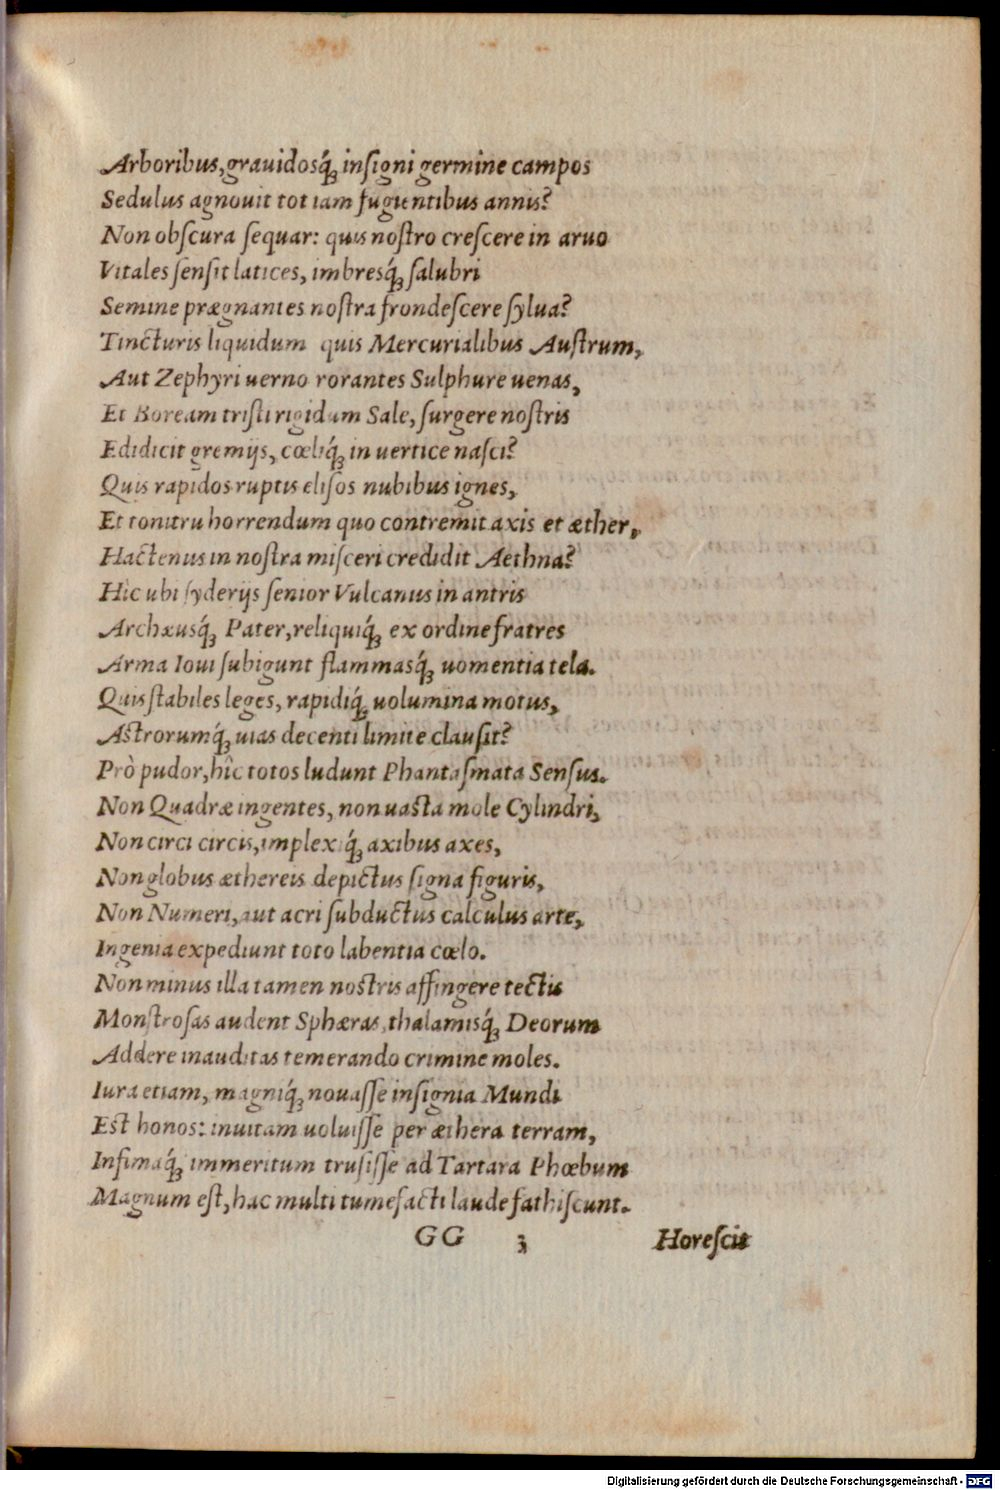 Arboribus, grauidosq́; inſigni germine campos
Sedulus agnouit tot iam fugientibus annis?
Non obſcura ſequar: quis noſtro creſcere in aruo
Vitales ſenſit latices, imbresq́; ſalubri
Semine prægnantes noſtra frondeſcere ſylua?
Tincturis liquidum quis Mercurialibus Auſtrum,
Aut Zephyri uerno rorantes Sulphure uenas,
Et Boream triſti rigidum Sale, ſurgere noſtris
Edidicit gremijs, cœliq́; in uertice naſci?
Quis rapidos ruptis eliſos nubibus ignes,
Et tonitru horrendum quo contremit axis et æther,
Hactenus in noſtra miſceri credidit Aethna?
Hic ubi ſyderijs ſenior Vulcanus in antris
Archæusq́; Pater, reliquiq́; ex ordine fratres
Arma Ioui ſubigunt flammasq́; uomentia tela.
Quis ſtabiles leges, rapidiq́; uolumina motus,
Aſtrorumq́; uias decenti limite clauſit?
Prò pudor, hîc totos ludunt Phantaſmata Senſus.
Non Quadræ ingentes, non uaſta mole Cylindri,
Non circi circis, implexiq́; axibus axes,
Non globus æthereis depictus ſigna figuris,
Non Numeri, aut acri ſubductus calculus arte,
Ingenia expediunt toto labentia cœlo.
Non minus illa tamen noſtris affingere tectis
Monſtroſas audent Sphæras, thalamisq́; Deorum
Addere inauditas temerando crimine moles.
Iura etiam, magniq́; nouaſſe inſignia Mundi
Eſt honos: inuitam uoluiſſe per æthera terram,
Infimaq́; immeritum truſiſſe ad Tartara Phœbum
Magnum eſt, hac multi tumefacti laude fathiſcunt.
GG 3 Horeſcit
Digitalisierung gefördert durch die Deutsche Forschungsgemeinschaft - DFG